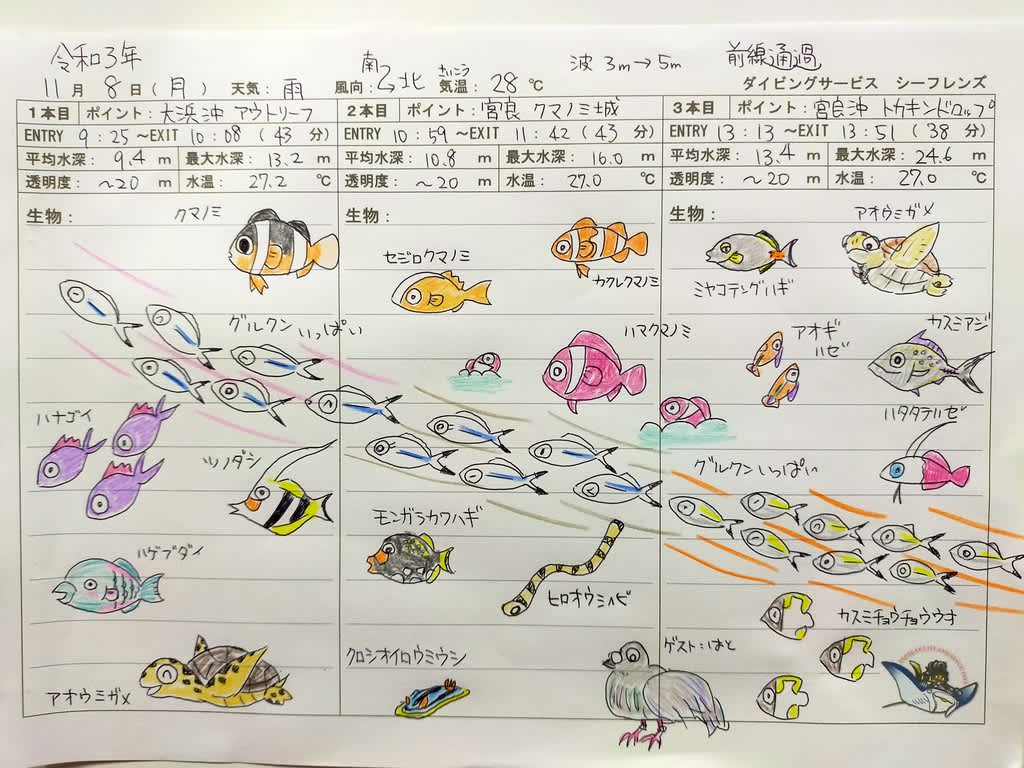 令和3年 南→北 さいこう 波 3m→5m 前線通過
11月 8日(月) 天気: 雨 風向: 気温: 28℃ ダイビングサービス シーフレンズ
1本目 ポイント: 大浜沖 アウトリーフ
ENTRY 9:25~EXIT 10:08 (43分)
平均水深: 9.4m 最大水深: 13.2m
透明度: ~20m 水温: 27.2℃
生物:
クマノミ
グルクン いっぱい
ハナゴイ
ツノダシ
ハゲブダイ
アオウミガメ
2本目 ポイント: 宮良 クマノミ城
ENTRY 10:59~EXIT 11:42 (43分)
平均水深: 10.8m 最大水深: 16.0m
透明度: ~20m 水温: 27.0℃
生物:
セジロクマノミ
カクレクマノミ
ハマクマノミ
モンガラカワハギ
ヒロオウミヘビ
クロシオイロウミウシ
3本目 ポイント: 宮良沖 トウキンドロップ
ENTRY 13:13~EXIT 13:51 (38分)
平均水深: 13.4m 最大水深: 24.6m
透明度: ~20m 水温: 27.0℃
生物:
アオウミガメ
ミヤコテングハギ
アオギハゼ
カスミアジ
ハタタテハゼ
グルクンいっぱい
カスミチョウチョウウオ
ゲスト:はと